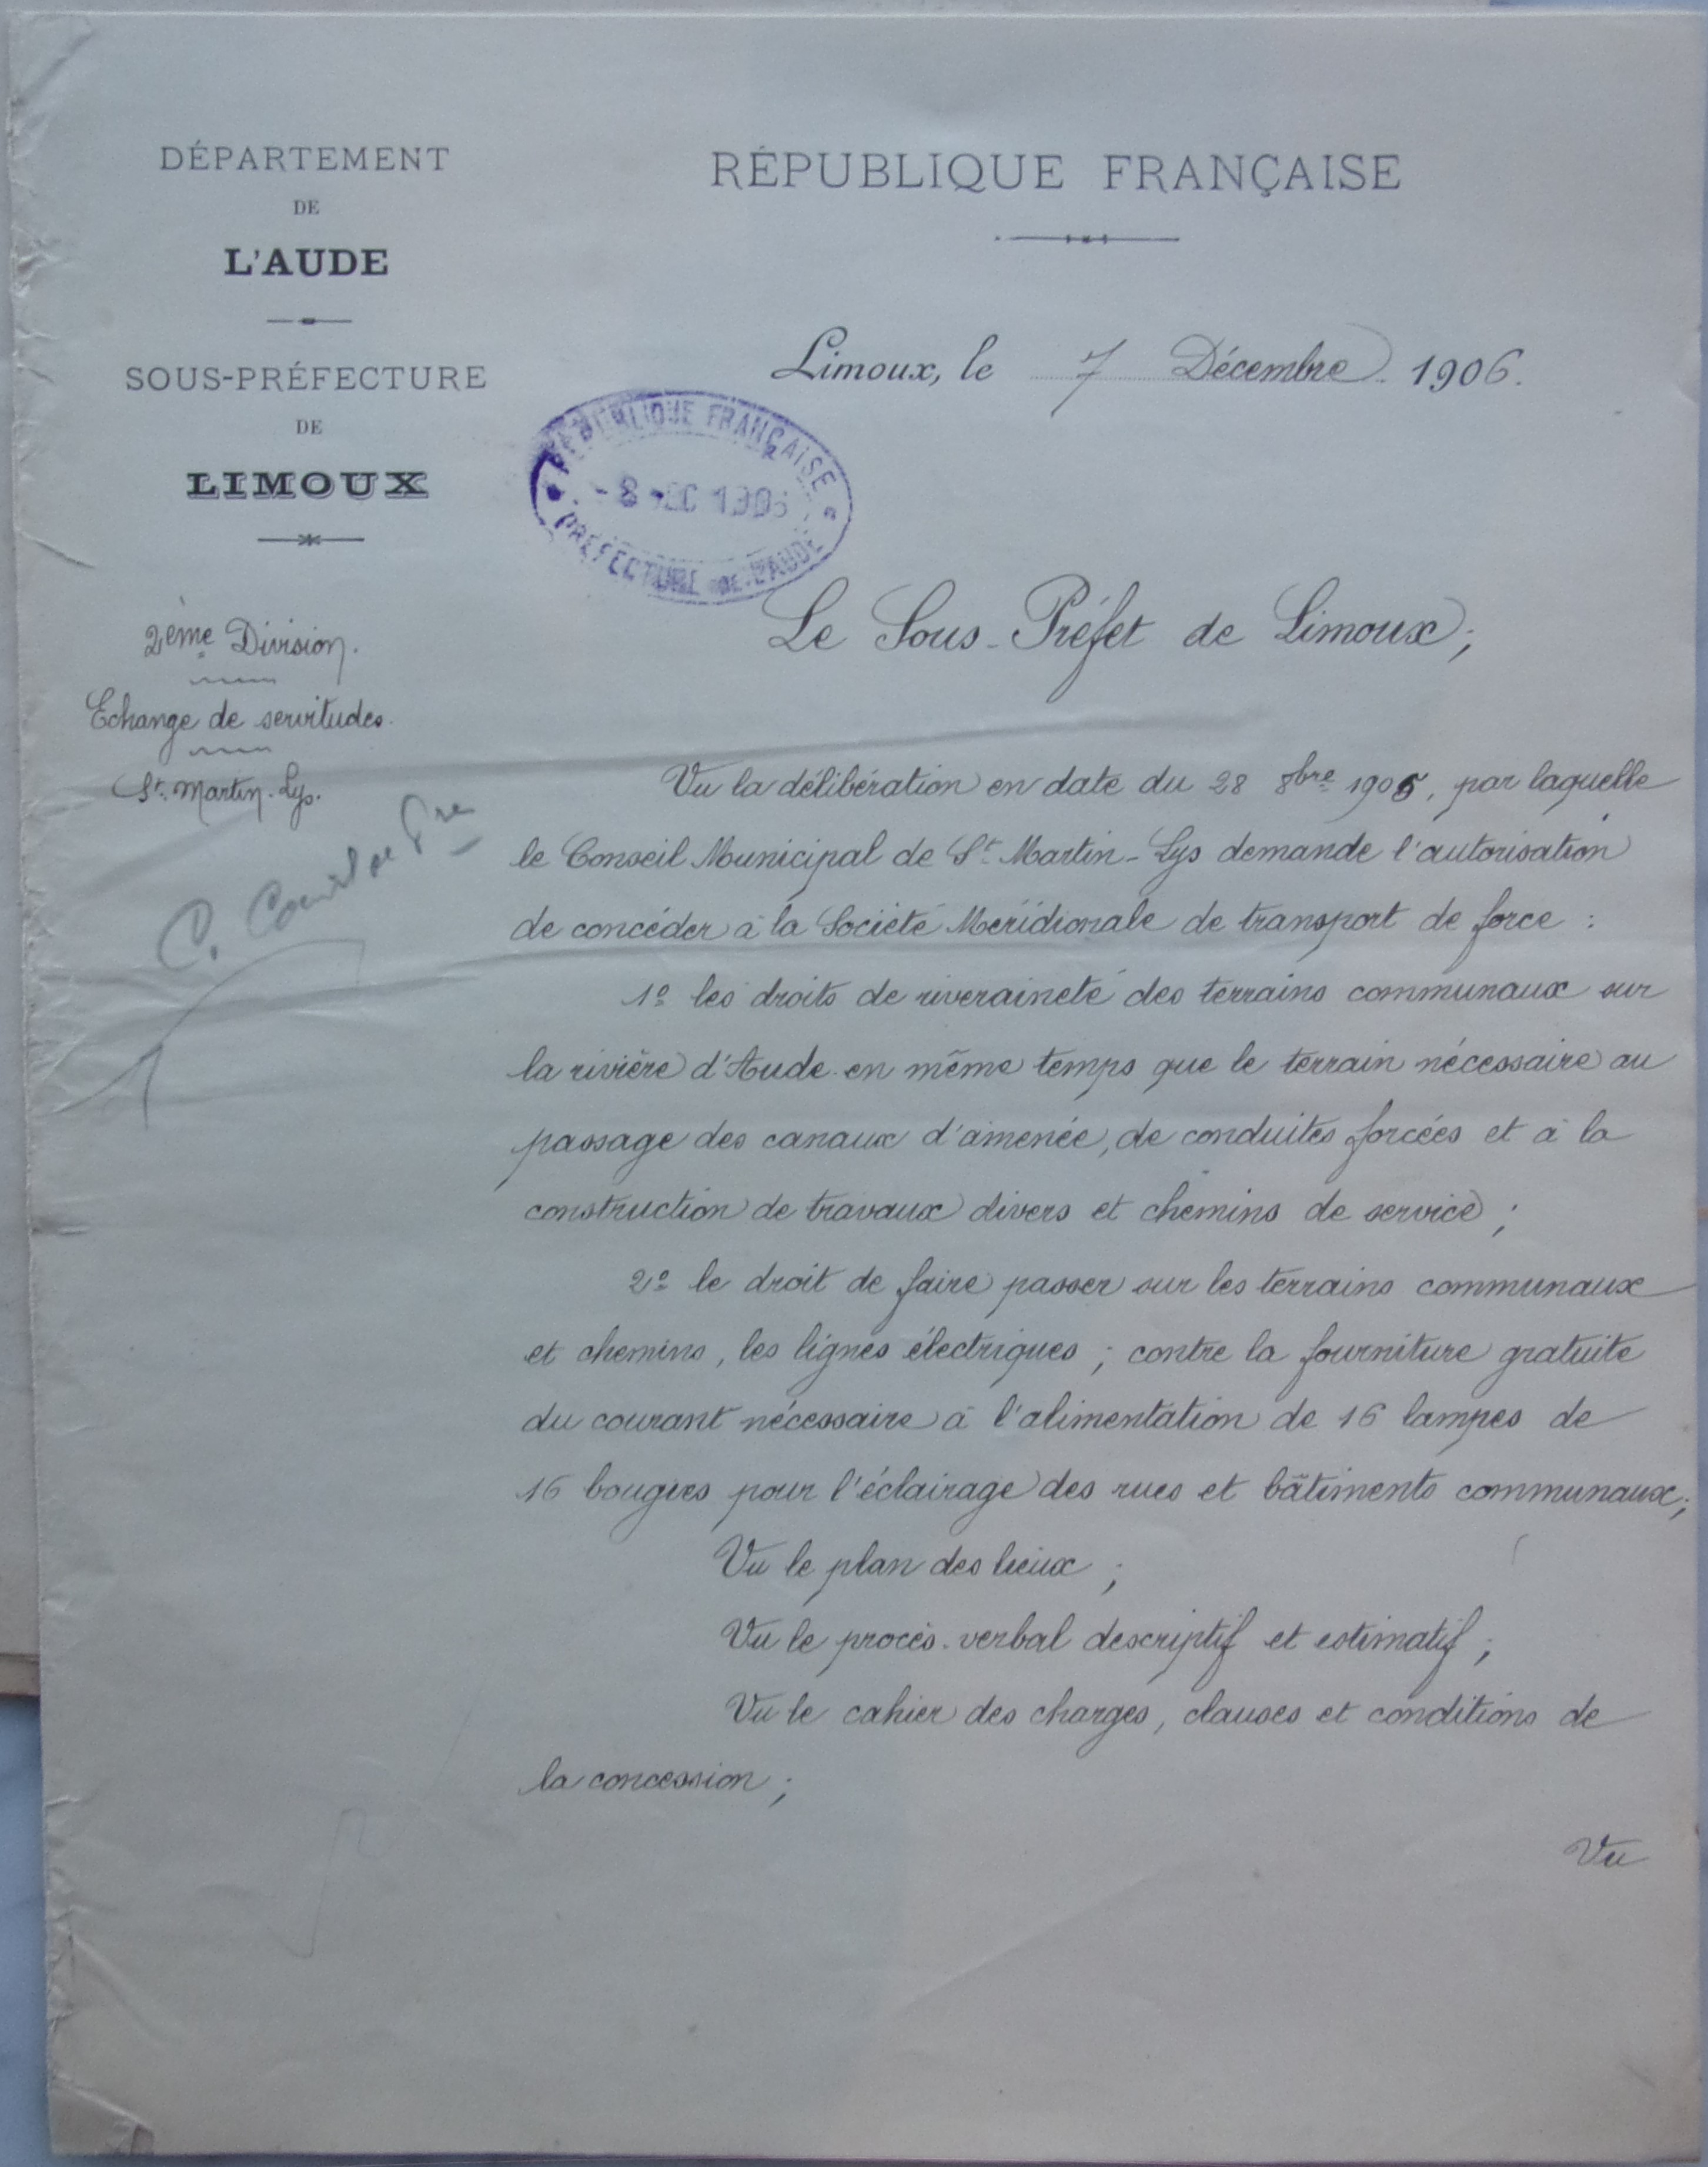 DÉPARTEMENT
DE
L'AUDE
SOUS-PRÉFECTURE
DE
LIMOUX
2ème Division.
Echange de servitudes.
St. Martin-Lys.
RÉPUBLIQUE FRANÇAISE
Limoux, le 7 Décembre 1906.
RÉPUBLIQUE FRANÇAISE
PRÉFECTURE DE L'AUDE
Le Sous-Préfet de Limoux;
Vu la délibération en date du 28 8bre 1905, par laquelle
le Conseil Municipal de St Martin-Lys demande l'autorisation
de concéder à la Société Méridionale de transport de force :
1º les droits de riveraineté des terrains communaux sur
la rivière d'Aude en même temps que le terrain nécessaire au
passage des canaux d'amenée, de conduites forcées et à la
construction de travaux divers et chemins de service ;
2º le droit de faire passer sur les terrains communaux
et chemins, les lignes électriques ; contre la fourniture gratuite
du courant nécessaire à l'alimentation de 16 lampes de
16 bougies pour l'éclairage des rues et bâtiments communaux;
Vu le plan des lieux ;
Vu le procès-verbal descriptif et estimatif ;
Vu le cahier des charges, clauses et conditions de
la concession ;
Vu